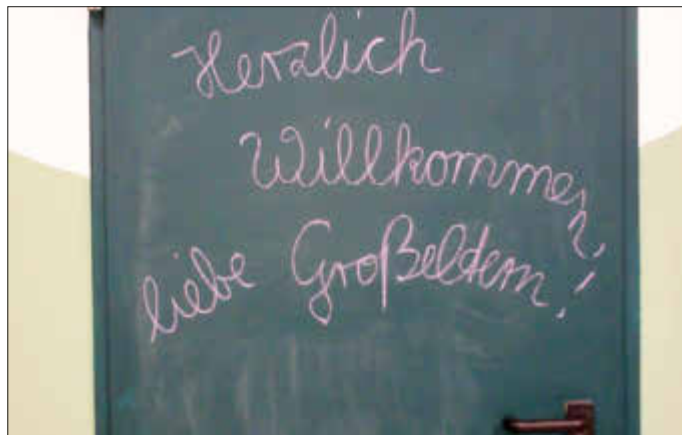 Herzlich
Willkommen,
liebe Großeltern!